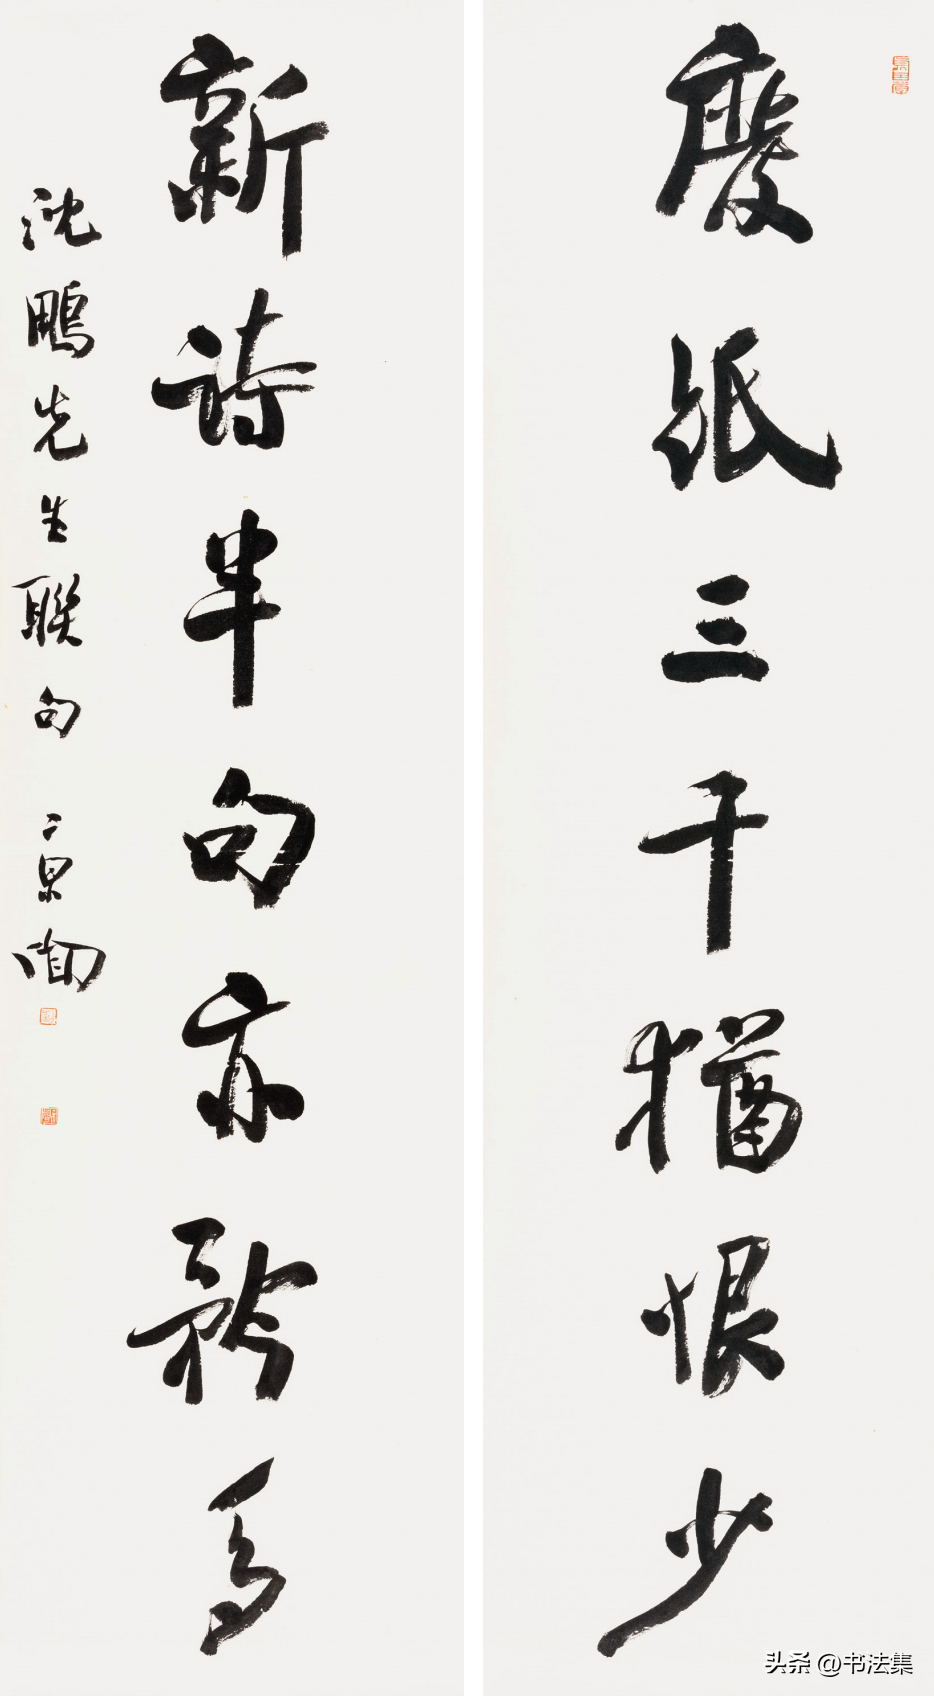 廢紙三千猶恨少
新詩半句亦矜多
沈鵬先生聯句
头条 @书法集